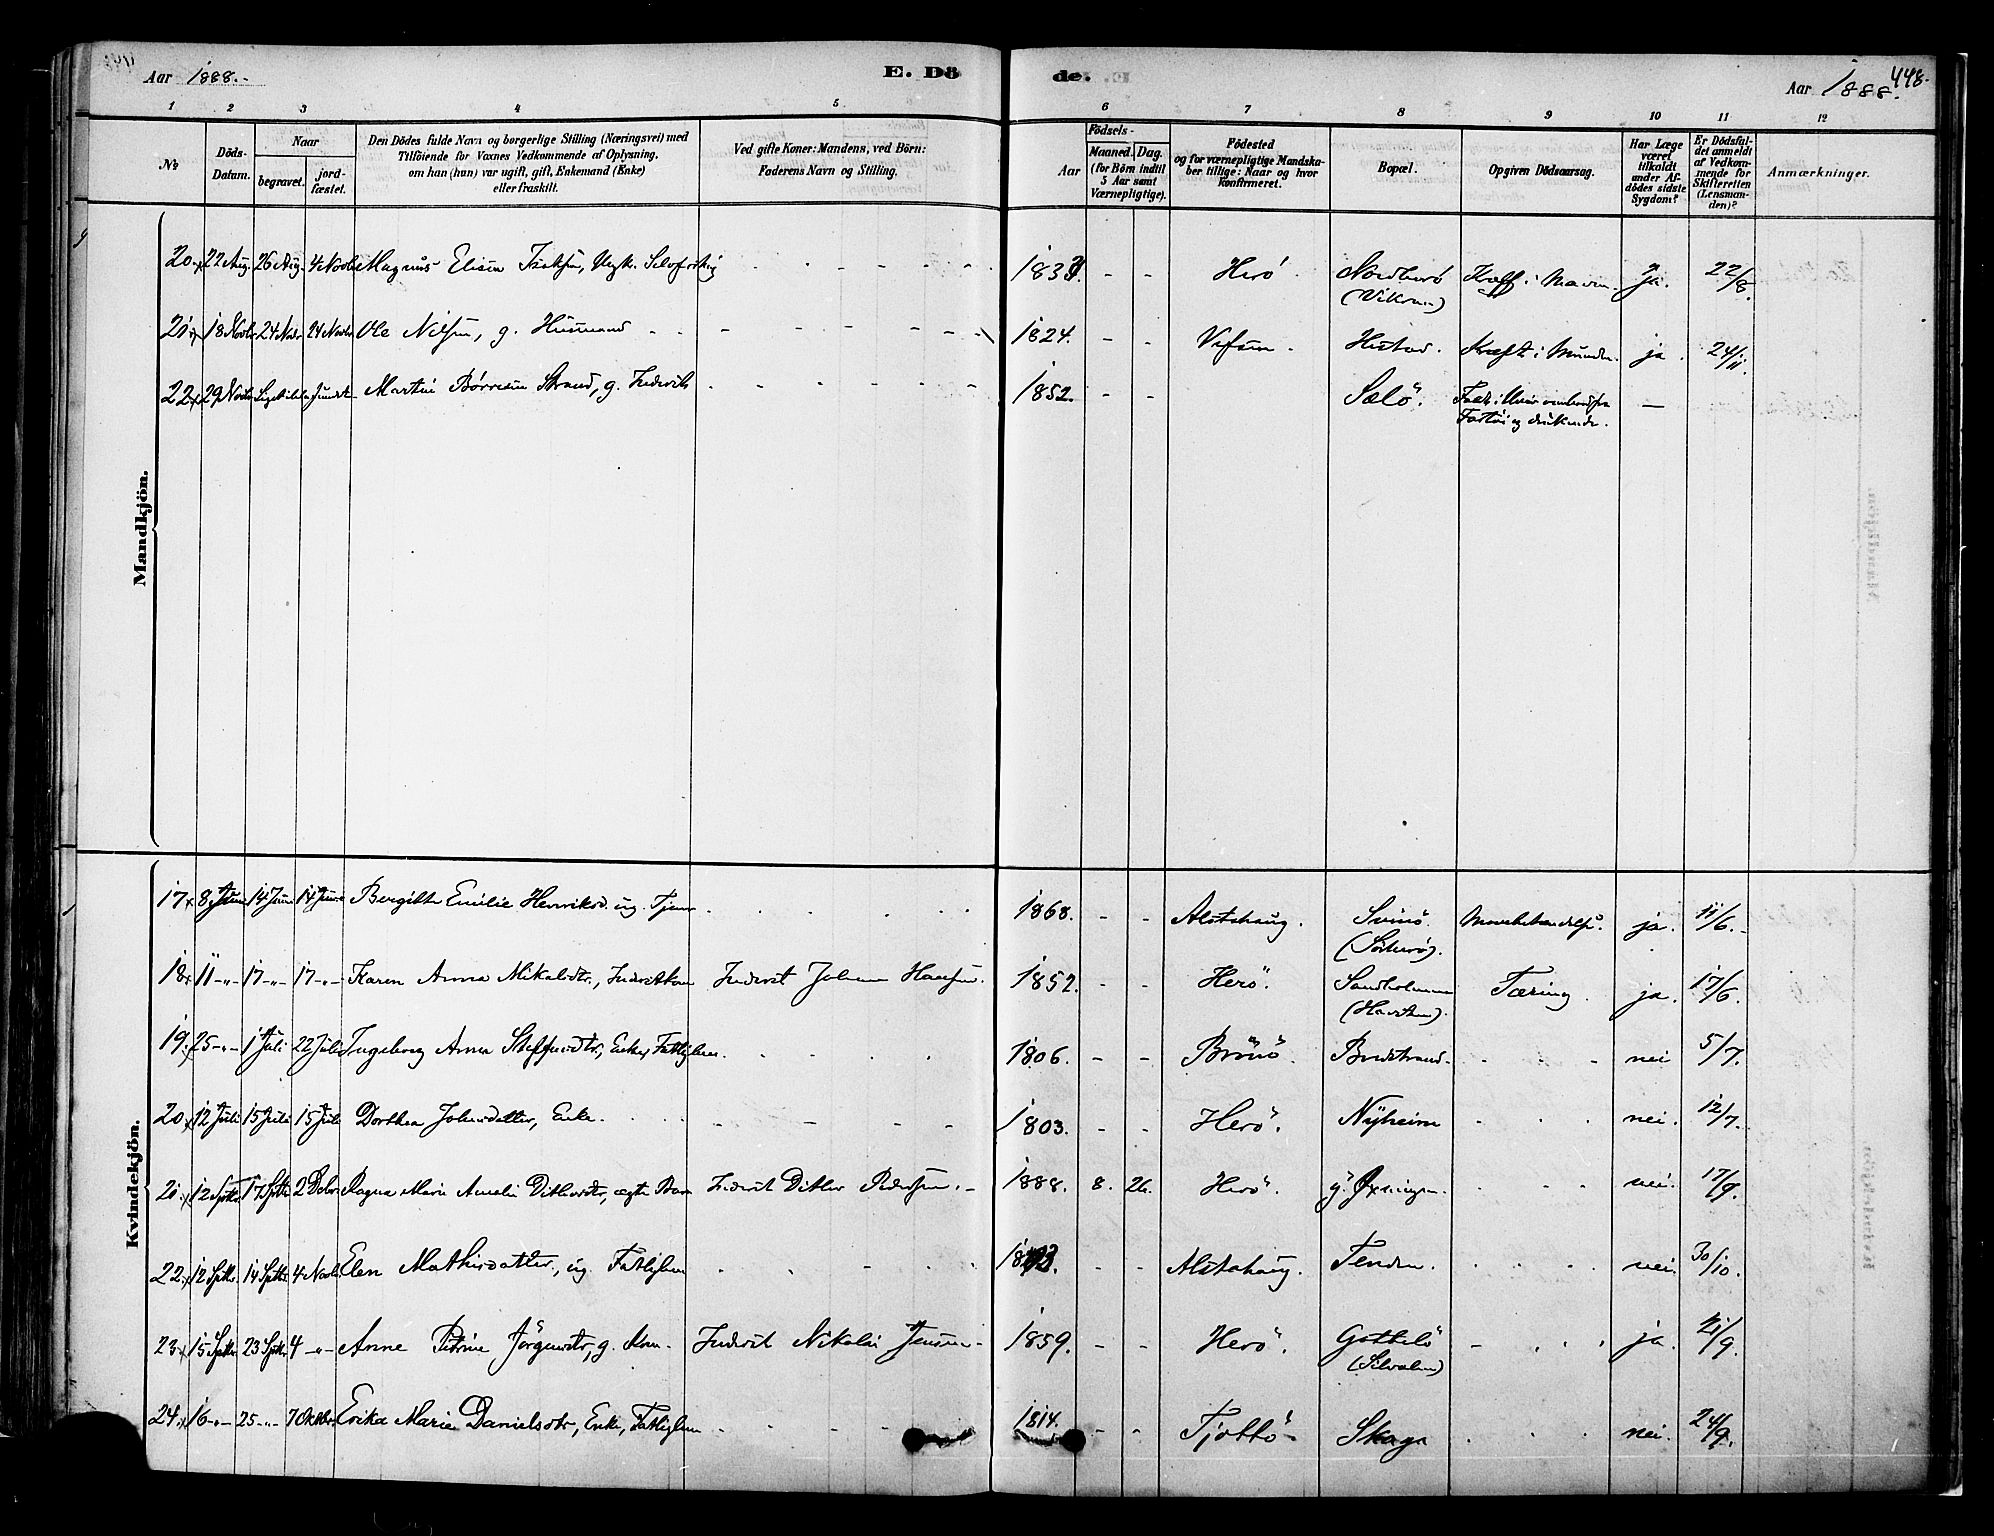 Aar 1888.
E. Dö de.
Aar 1888.
448.
1 2 3 4 5 6 7 8 9 10 11 12
No
Döds-Datum.
Naar
begravet.
jord-fæstet.
Den Dödes fulde Navn og borgerlige Stilling (Næringsvei) med
Tilföiende for Voxnes Vedkommende af Oplysning,
om han (hun) var ugift, gift, Enkemand (Enke)
eller fraskilt.
Ved gifte Koner: Mandens, ved Börn:
Faderens Navn og Stilling.
Födsels-
Aar
Maaned. Dag.
(for Börn indtil
5 Aar samt
Værnepligtige).
Födested
og for værnepligtige Mandska-
ber tillige: Naar og hvor
konfirmeret.
Bopæl.
Opgiven Dödsaarsag.
Har Læge
været
tilkaldt
under Af-
dödes sidste
Sygdom?
Er Dödsfal-
det anmeldt
af Vedkom-
mende for
Skifteretten
(Lensman-
den)?
Anmærkninger.
Mandkjön.
20. 22 Aug. 26 Aug. 4 Novbr Magnus Elisen - - - 1833. - - Herö. Nordherö ja. 22/8.
21. 18 Novbr 24 Novbr 24 Novbr Ole Nilsen, g. Husmand - - - 1824. - - Vefsen. Kræft i Munden. ja. 24/11.
22. 29 Novbr Martin Börresen Strand, g. Inderst - - - 1852. - - Sælö. —
Kvindekjön.
17. 8 Juni 14 Juni 14 Juni Bergitte Emilie Henriksd. ug. Tjen. - - 1868. - - Alstahaug. Svinö. ja. 11/6.
(Sörherö).
18. 11 -"- 17 -"- 17 -"- Karen Anna Mikalsdtr., Inderstkone Inderst Johan Hansen. 1852. - - Herö. Sandholmen Tæring. ja. 17/6.
19. 25 -"- 1 Juli 22 Juli Ingeborg Anna Steffensdtr., Enke, Fattiglem - - 1806. - - Brönö. Breistrand. nei 5/7.
20. 12 Juli 15 Juli 15 Juli Dorthea Johnsdatter, Enke. - - 1803. - - Herö. Nyheim nei. 12/7.
21. 12 Septbr 17 Septbr Ragna Marie Amalie Ditlevsdtr, ægte Barn Inderst Ditlev Pedersen. 1888. 8. 26. Herö. y. Öxningen. nei. 17/9.
22. 12 Septbr 14 Septbr 4 Novbr Elen Mathisdatter, ug. Fattiglem - - Alstahaug. Tenden. nei. 30/10.
23. 15 Septbr 23 Septbr 4 -"- Anne Petrine Jörgensdtr, g. Kone. Inderst Nikolai Jensen. 1859. - - Herö. ja. 21/9.
24. 16 -"- 25 -"- 7 Oktbr Erika Marie Danielsdtr, Enke, Fattiglem - - 1814. - - Tjöttö Skaga nei. 24/9.